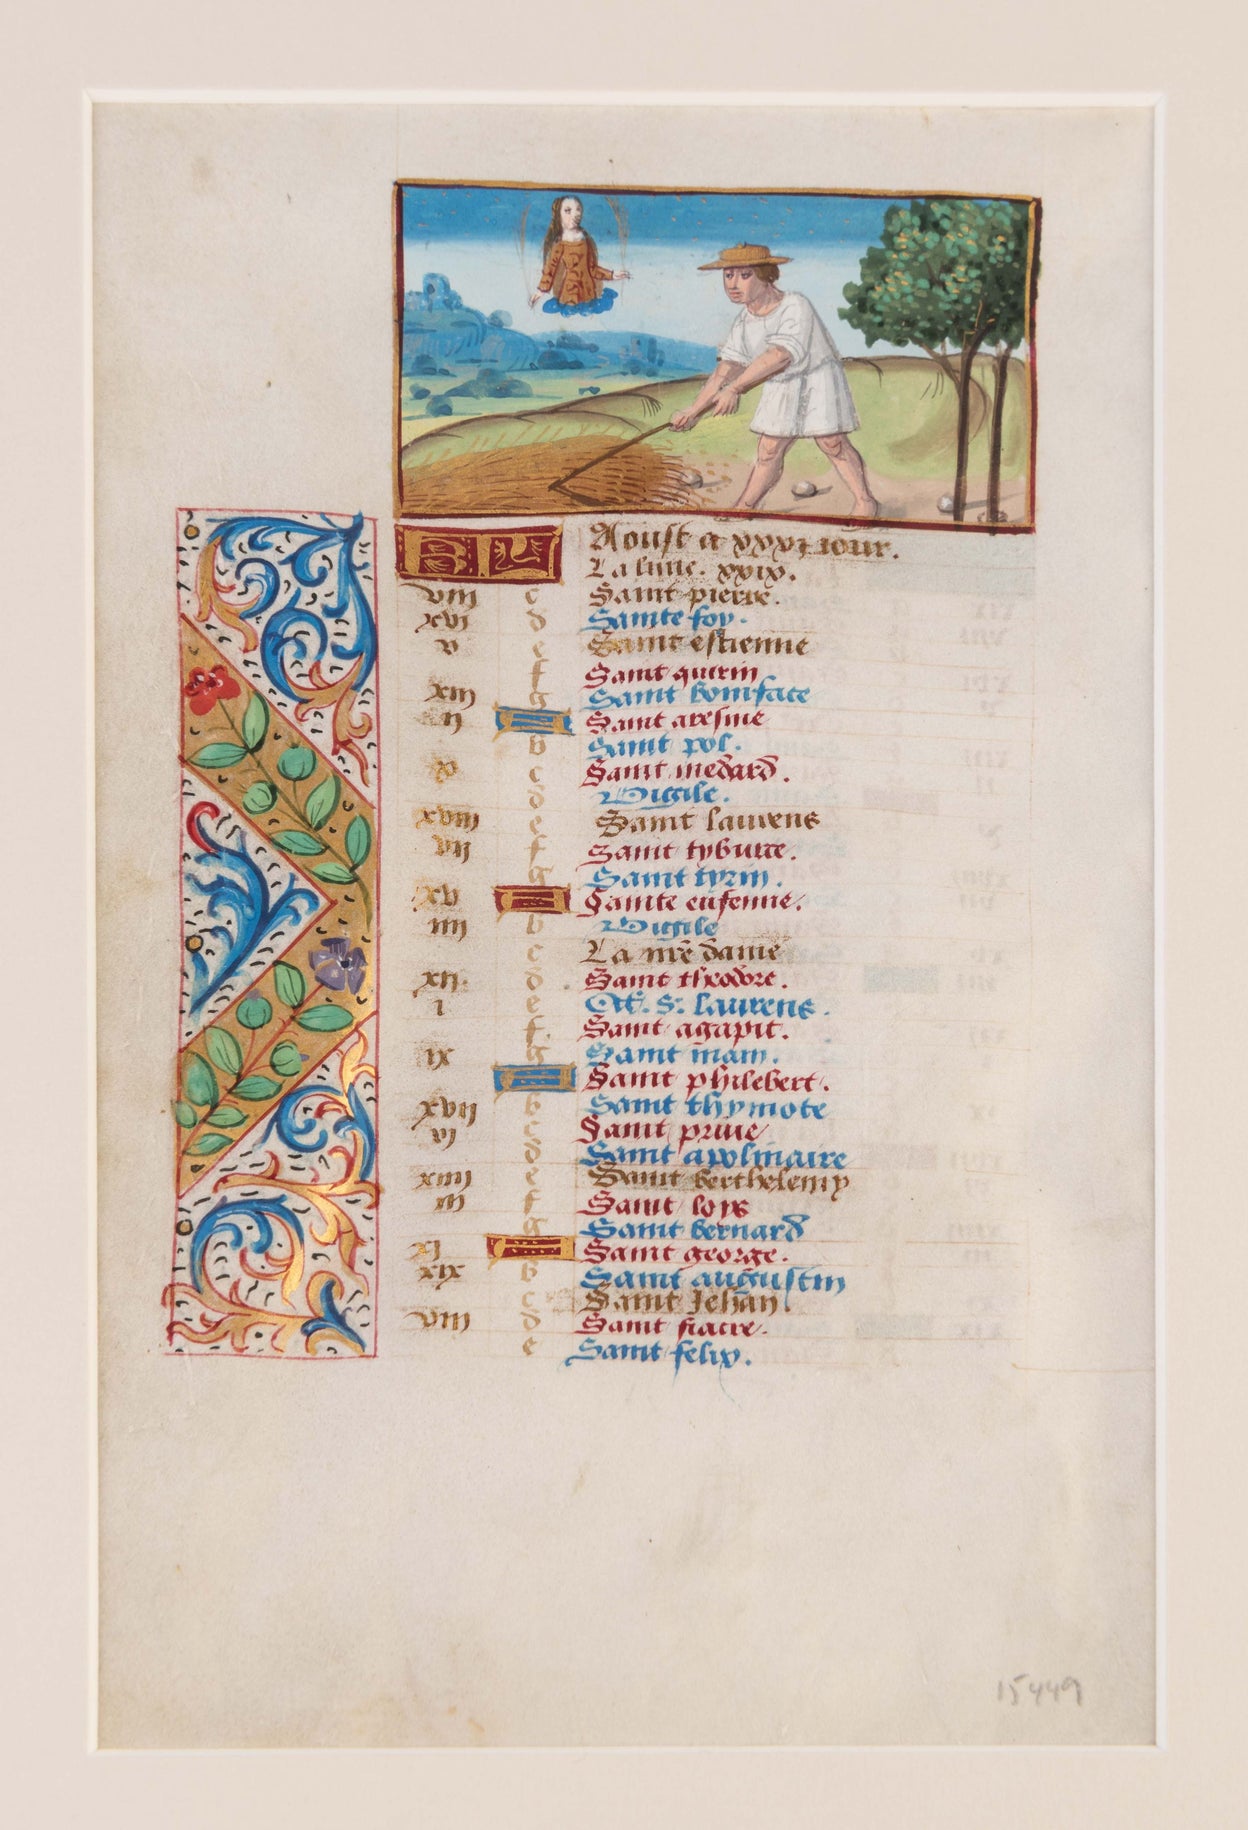 KL Aoust a xxxi iour.
La lune. xxix.
viii c Saint pierre.
xvi d Sainte foy.
v e Saint estienne
f Saint quirin
xiii g Saint boniface
ii A Saint aresme
b Saint pol.
x c Saint medard.
d Vigile.
xviii e Saint laurens
vii f Saint tyburce.
g Saint tyrin.
xv A Sainte eufenne.
iiii b Vigile
c La nre dame
xii d Saint theodore.
i e Oct. S. laurens.
f Saint agapit.
ix g Saint mam.
A Saint philebert.
xvii b Saint thymote
vi c Saint prive
d Saint apolinaire
xiiii e Saint berthelemy
iii f Saint loys
g Saint bernard
xi A Saint george.
xix b Saint augustin
c Saint Jehan.
viii d Saint fiacre.
e Saint felix.
15449